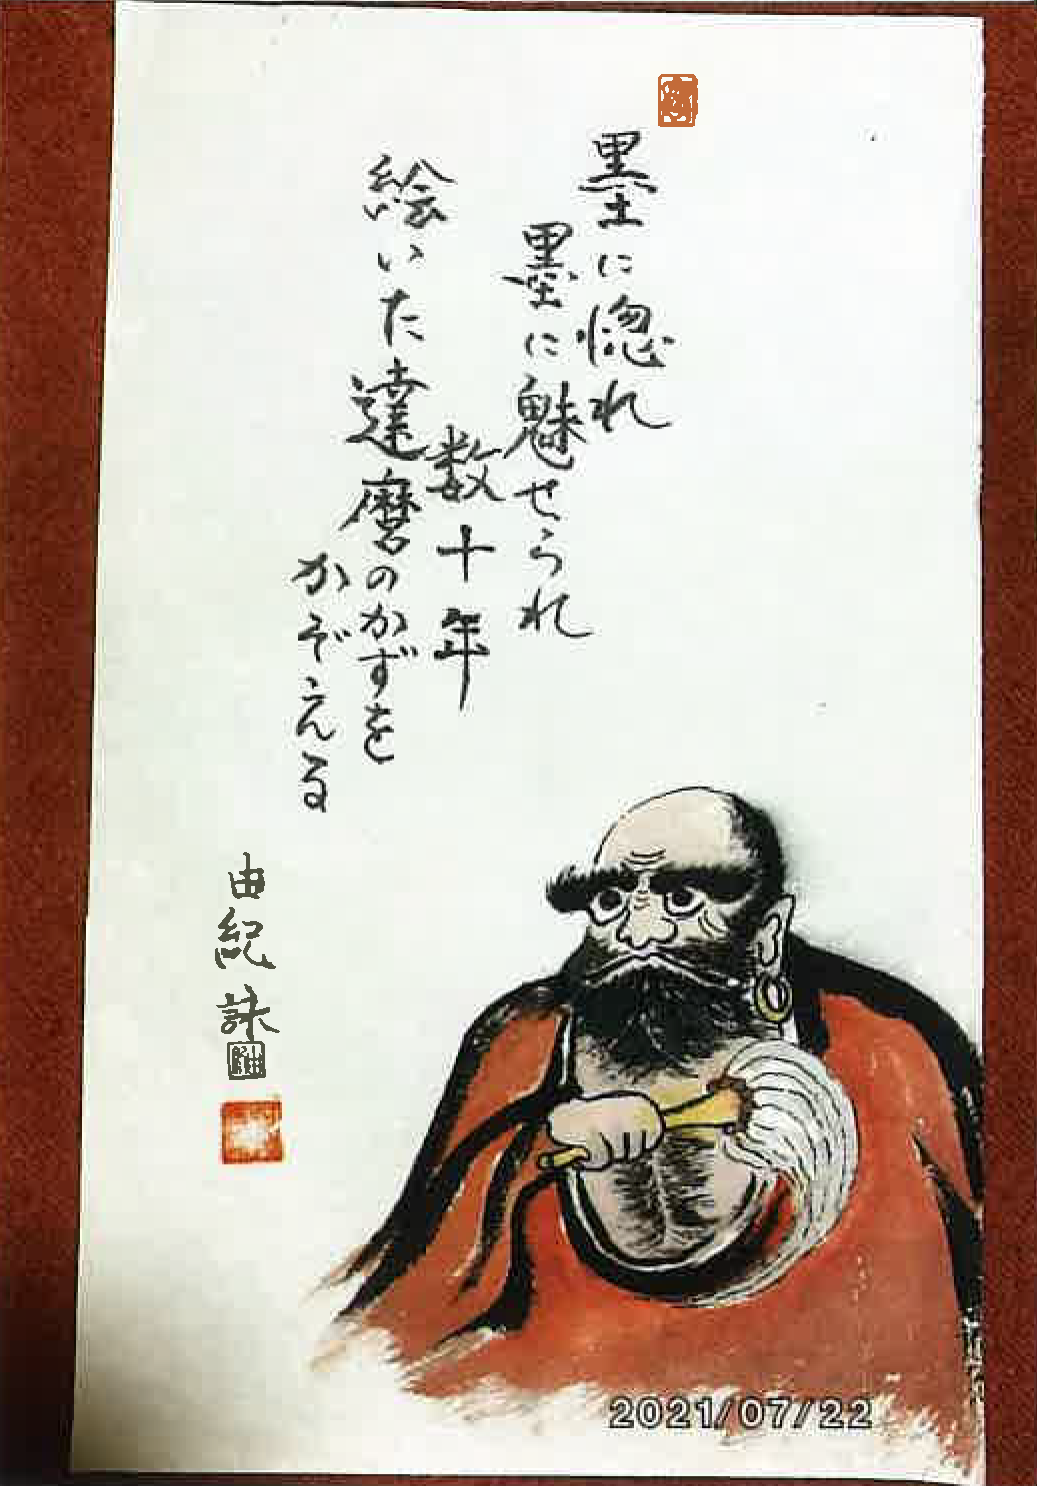 墨に惚れ
墨に魅せられ
数十年
絵いた達磨のかずを
かぞえる
由紀 詠
2021/07/22